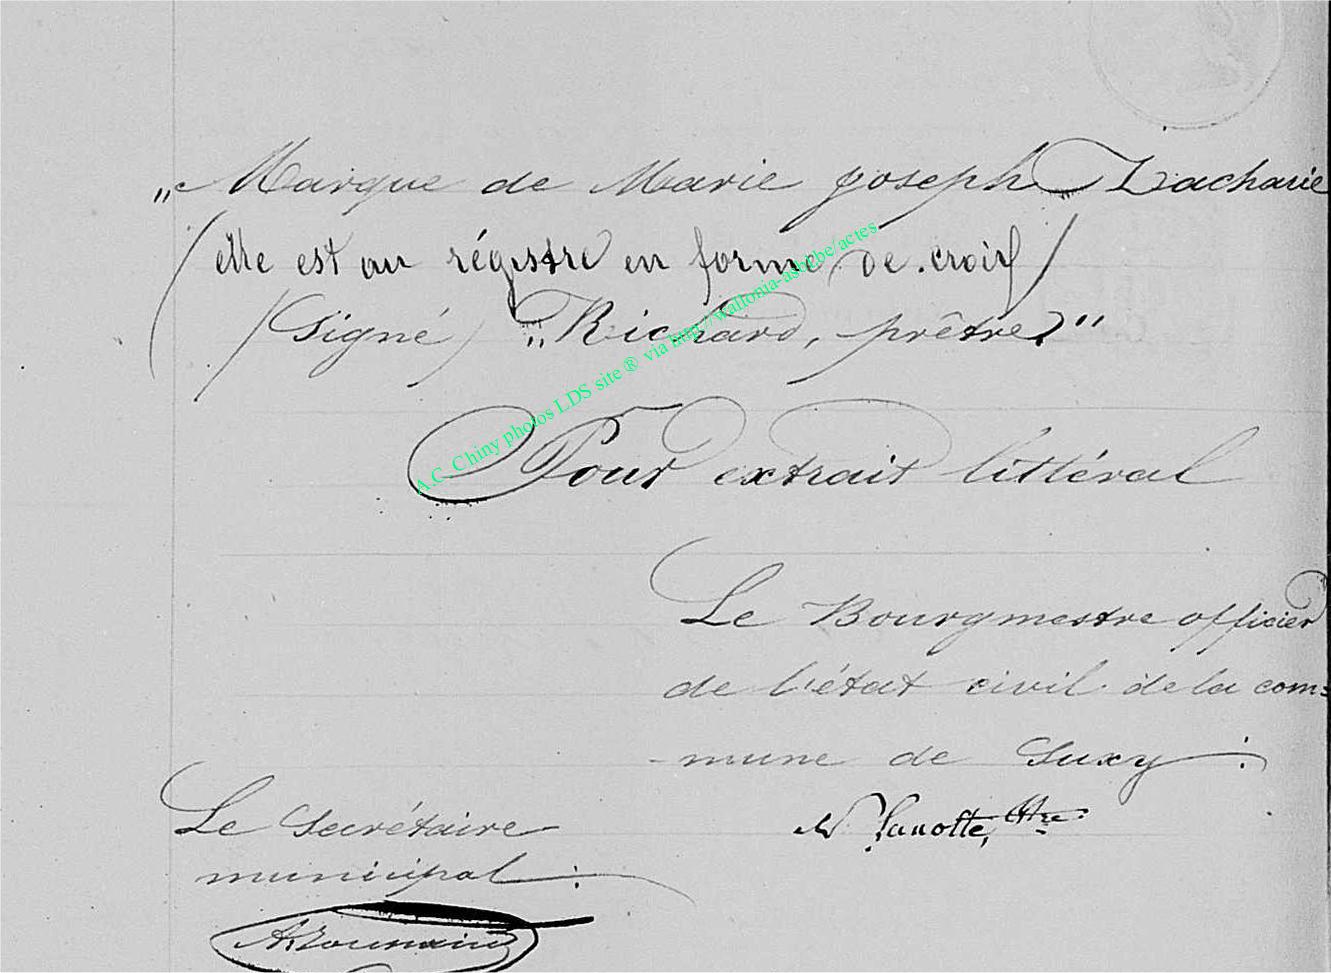 „Marque de Marie Joseph Zacharie
(elle est au régistre en forme de croix)
(Signé) „Richard, prêtre"
Pour extrait littéral
Le Bourgmestre officier
de l'état civil de la com=
-mune de Suxy:
Le Secrétaire
municipal:
A.C. Chiny photos LDS site ® via http://wallonia-asbl.be/actes